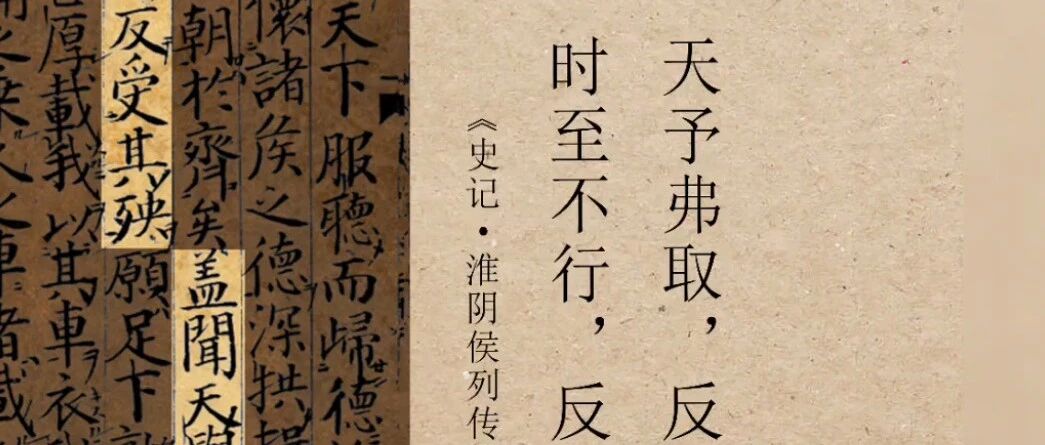 天予弗取，反
时至不行，反
《史记·淮阴侯列传
天下服聽而歸德
懷諸侯之德深拱揖
朝於齊矣盖聞天與
反受其殃願足下
厚載我以其車衣
之乘人之車者載